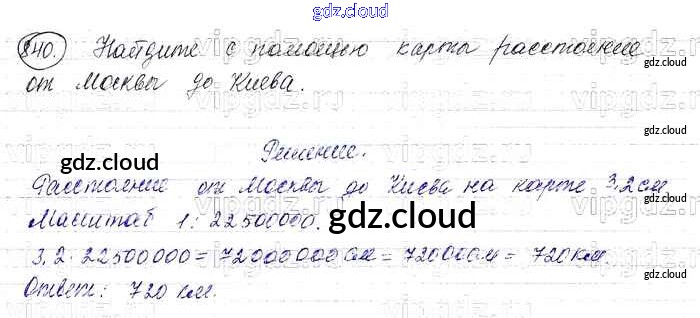 gdz.cloud
840. Найдите с помощью карты расстояние
gdz.cloud
от Москвы до Киева.
gdz.cloud
Решение.
gdz.cloud
gdz.cloud
Расстояние от Москвы до Киева на карте 3,2 см
Масштаб 1:22500000.
gdz.cloud
gdz.cloud
3,2·22500000=72000000см=72000см=720км.
gdz.cloud
Ответ: 720 км.
gdz.cloud